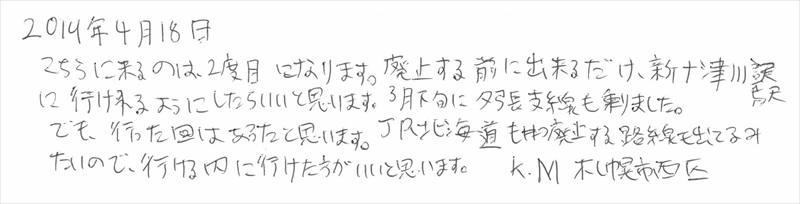 2014年4月18日
こちらに来るのは、2度目になります。廃止する前に出来るだけ、新十津川駅
に行けれるようにしたらいいと思います。3月下旬に夕張支線も乗りました。
でも、行った回はあったと思います。JR北海道も廃止する路線も出てるみ
たいので、行ける内に行けた方がいいと思います。 K.M 札幌市西区